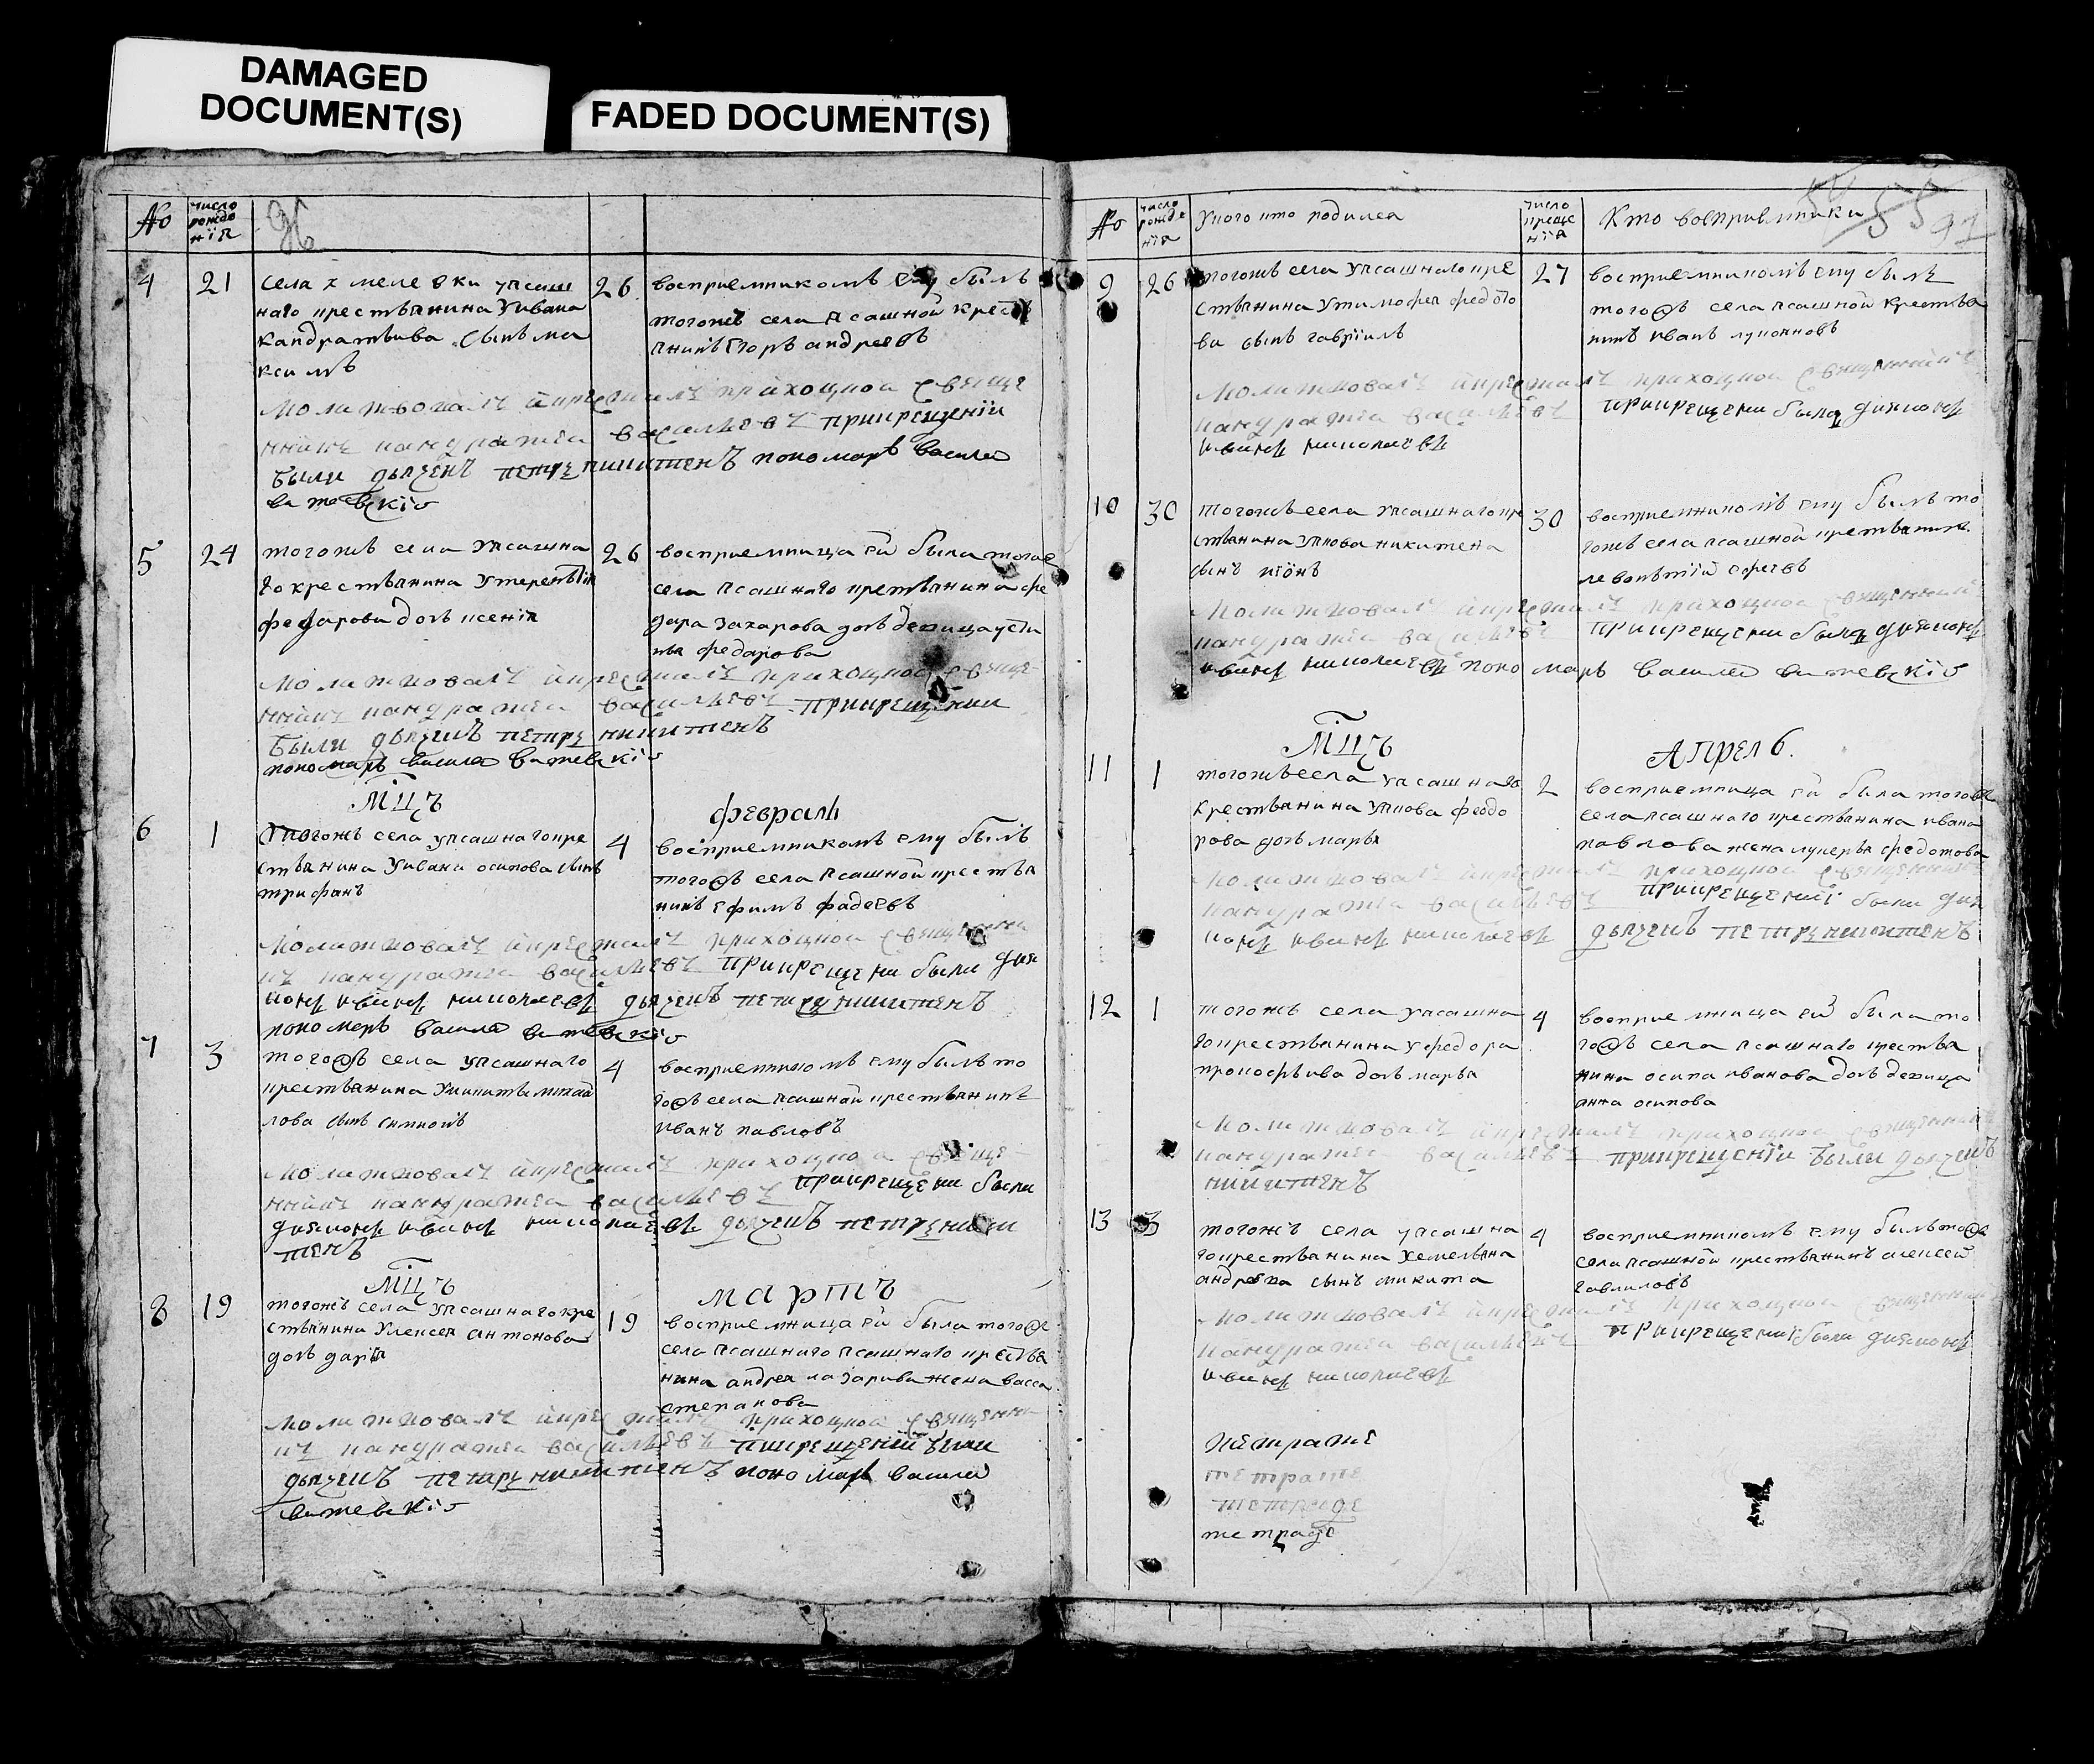 DAMAGED
DOCUMENT(S)
FADED DOCUMENT(S)
№
число
рожде
нїя
4 21 26
села хмелевки уясаш
наго крестьянина Уивана
кандратьива сынъ ма
ксимъ
восприемникомъ ему былъ
тогожъ села ясашной крест
янинъ Егоръ андреевъ
молитвовалъ и крестилъ приходной свяще
нникъ кандратей васильевъ прикрещенїи
были дьячекъ петръ никитенъ пономарь василей
витевскїй
5 24 26
тогожъ села Уясашна
го крестьянина Утерентїя
федарова дочь ксенїя
восприемница ей была тогож
села ясашнаго крестьянина фе
дара захарова дочь девица усти
нья федарова
молитвовалъ и крестилъ приходной свяще
нникъ кандратей васильевъ прикрещении
были дьячекъ петръ никитенъ
пономарь василей витевскїй
Мцъ февраль
6 1 4
Тогожъ села уясашнагокре
стьянина Уивана осипова сынъ
трифанъ
восприемникомъ ему былъ
тогожъ села ясашной крестья
нинъ ефимъ фадеевъ
молитвовалъ и крестилъ приходной священни
къ кандратей васильевъ прикрещени были дия
конъ иванъ николаевъ дьячекъ петръ никитенъ
пономарь василей витевскїй
7 3 4
тогожъ села уясашнаго
крестьянина Уникиты михай
лова сынъ симионъ
восприемникомъ ему былъ то
гожъ села ясашной крестьянинъ
иванъ павловъ
молитвовалъ и крестилъ приходной свяще
нникъ кандратей васильевъ прикрещени были
дияконъ иванъ николаевъ дьячекъ петръ ники
тенъ
Мцъ мартъ
8 19 19
тогожъ села уясашнагокре
стьянина Уалексея антонова
дочь дарїя
восприемница ей была тогожъ
села ясашнаго ясашнаго крестья
нина андрея лазарива жена васса
степанова
молитвовалъ и крестилъ приходной священни
къ кандратей васильевъ пикрещенїи были
дьячекъ петръ никитенъ пономарь василей
витевскїй
№
число
рожде
нїя
Укого кто родился
число
креще
нїя
Кто восприемники
55 91
9 26 27
тогожъ села уясашнагокре
стьянина Утимофея федото
ва сынъ гаврїилъ
восприемникомъ ему былъ
тогожъ села ясашной крестья
нинъ иванъ лукояновъ
молитвовалъ и крестилъ приходной священникъ
кандратей васильевъ прикрещени были дияконъ
иванъ николаевъ
10 30 30
тогожъ села уясашнагокре
стьянина Уиова никитена
сынъ иїонъ
восприемникомъ ему былъ то
гожъ села ясашной крестьянинъ
левонтїй сергеевъ
молитвовалъ и крестилъ приходной священникъ
кандратей васильевъ прикрещени были дияконъ
иванъ николаевъ пономарь василей витевскїй
Мцъ Апрель.
11 1 2
тогожъ села уясашнаго
крестьянина Уиова федо
рова дочь марья
восприемница ей была тогожъ
села ясашнаго крестьянина ивана
павлова жена лукерья федотова
молитвовалъ и крестилъ приходной священникъ
кандратей васильевъ прикрещениї были дия
конъ иванъ николаевъ дьячекъ петръ никитенъ
12 1 4
тогожъ села уясашна
гокрестьянина Уфедора
прокофьива дочь марья
восприемница ей была то
гожъ села ясашнаго крестья
нина осипа иванова дочь девица
анна осипова
молитвовалъ и крестилъ приходной священникъ
кандратей васильевъ прикрещенїи были дьячекъ
никитенъ
13 3 4
тогожъ села уясашна
гокрестьянина Уемельяна
андреева сынъ никита
восприемникомъ ему былъ тогожъ
села ясашной крестьянинъ алексей
гавриловъ
молитвовалъ и крестилъ приходной священникъ
кандратей васильевъ прикрещениї были дияконъ
иванъ николаевъ
тетраде